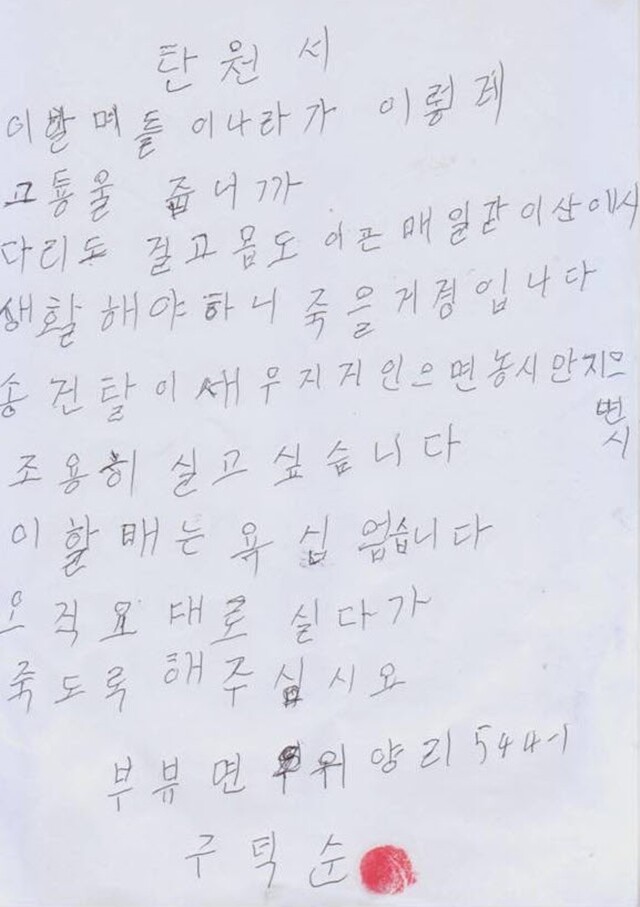 탄원서
이할메들 이나라가 이렇레
고통울 줍니까
다리도 절고 몸도 아픈 매일같이 산에서
생활해야하니 죽을거경입니다
송전탈이 새우지지안으면 농사안지으면서
조용히 실고 싶습니다
이 할매는 욕심 업습니다
오직 요대로 실다가
죽도록 해주십시요
부뷰면 위양리 544-1
구덕순